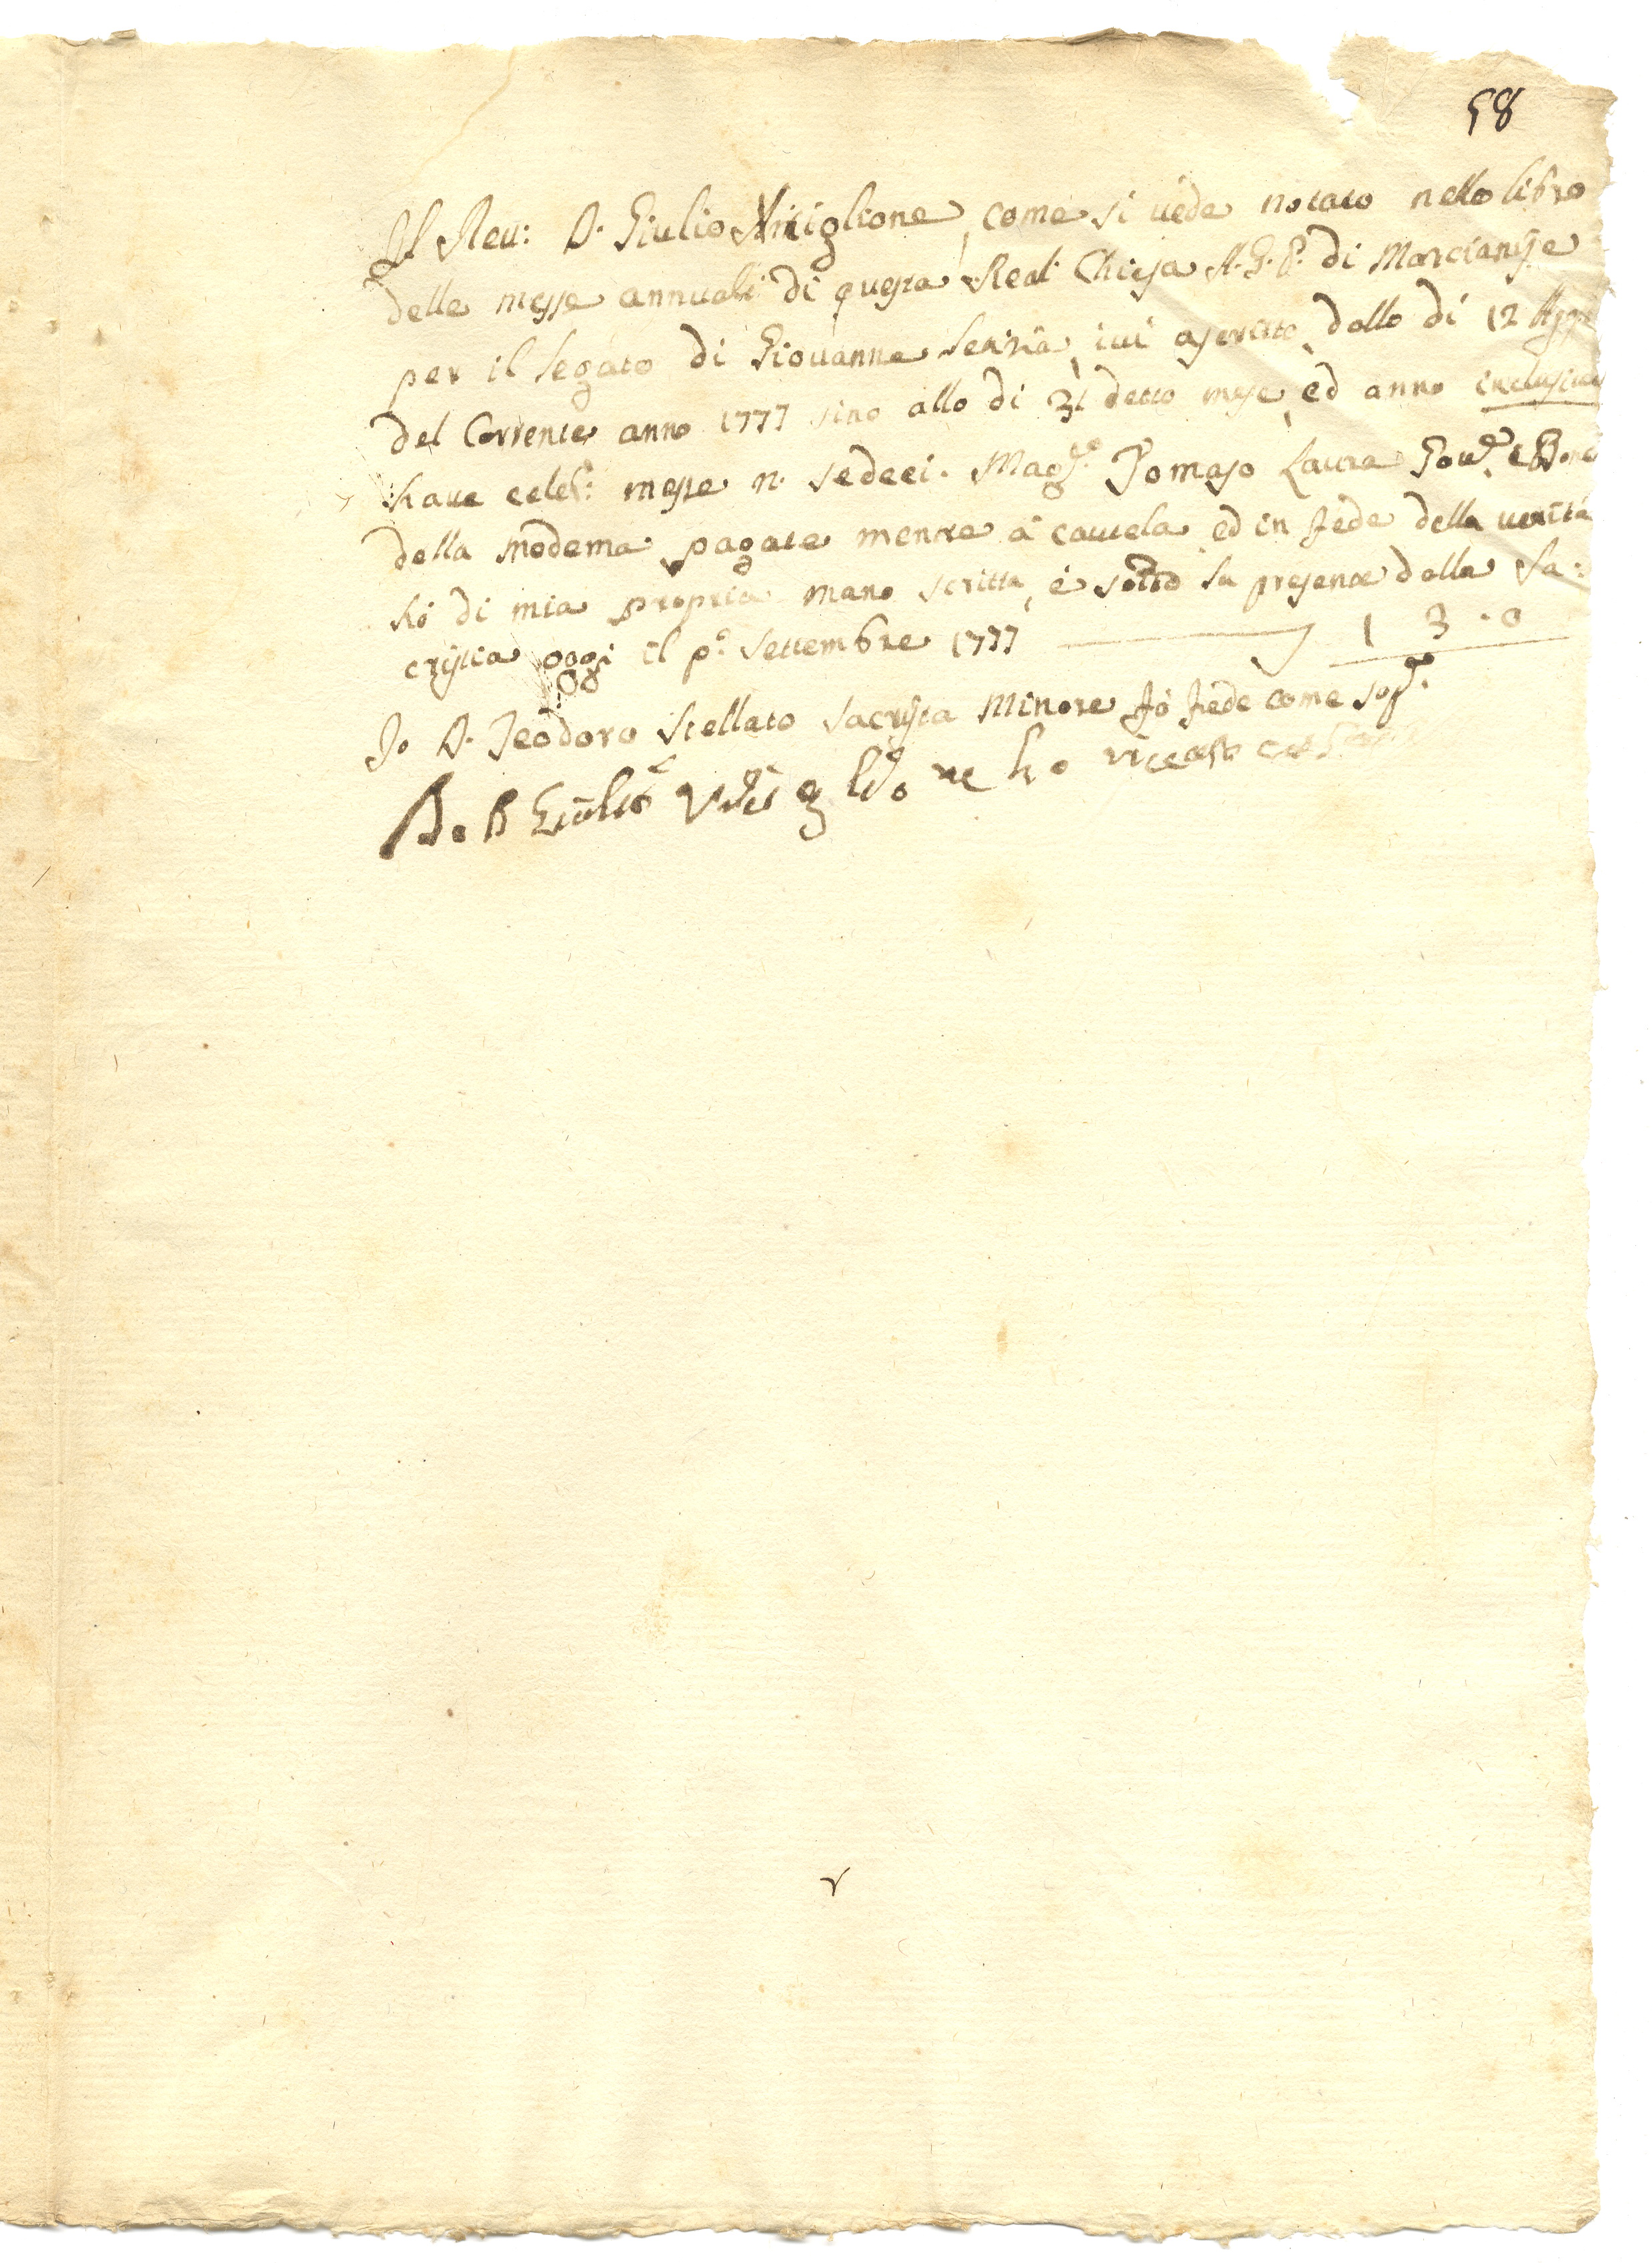 58
Il Rev: D. Giulio come si vede notato nello libro
delle messe annuali di questa Real Chiesa A. G. P. di Marcianise
per il legato di Giovanne ivi dallo dì 12
del Corrente anno 1777 sino allo di 31 detto mese, ed anno
have celeb: messe n. sedeci. Mag.co Tomaso Laura Gov.e
della modema pagate mentre à cautela ed in fede della verità
hò di mia propria mano scritta, è sotto la presenza della Sa:
cristia oggi il p.o Settembre 1777 1 3 . 0
Io D. Teodoro Stellato Sacrista Minore fò fede come sop.a
D. Giulio ho